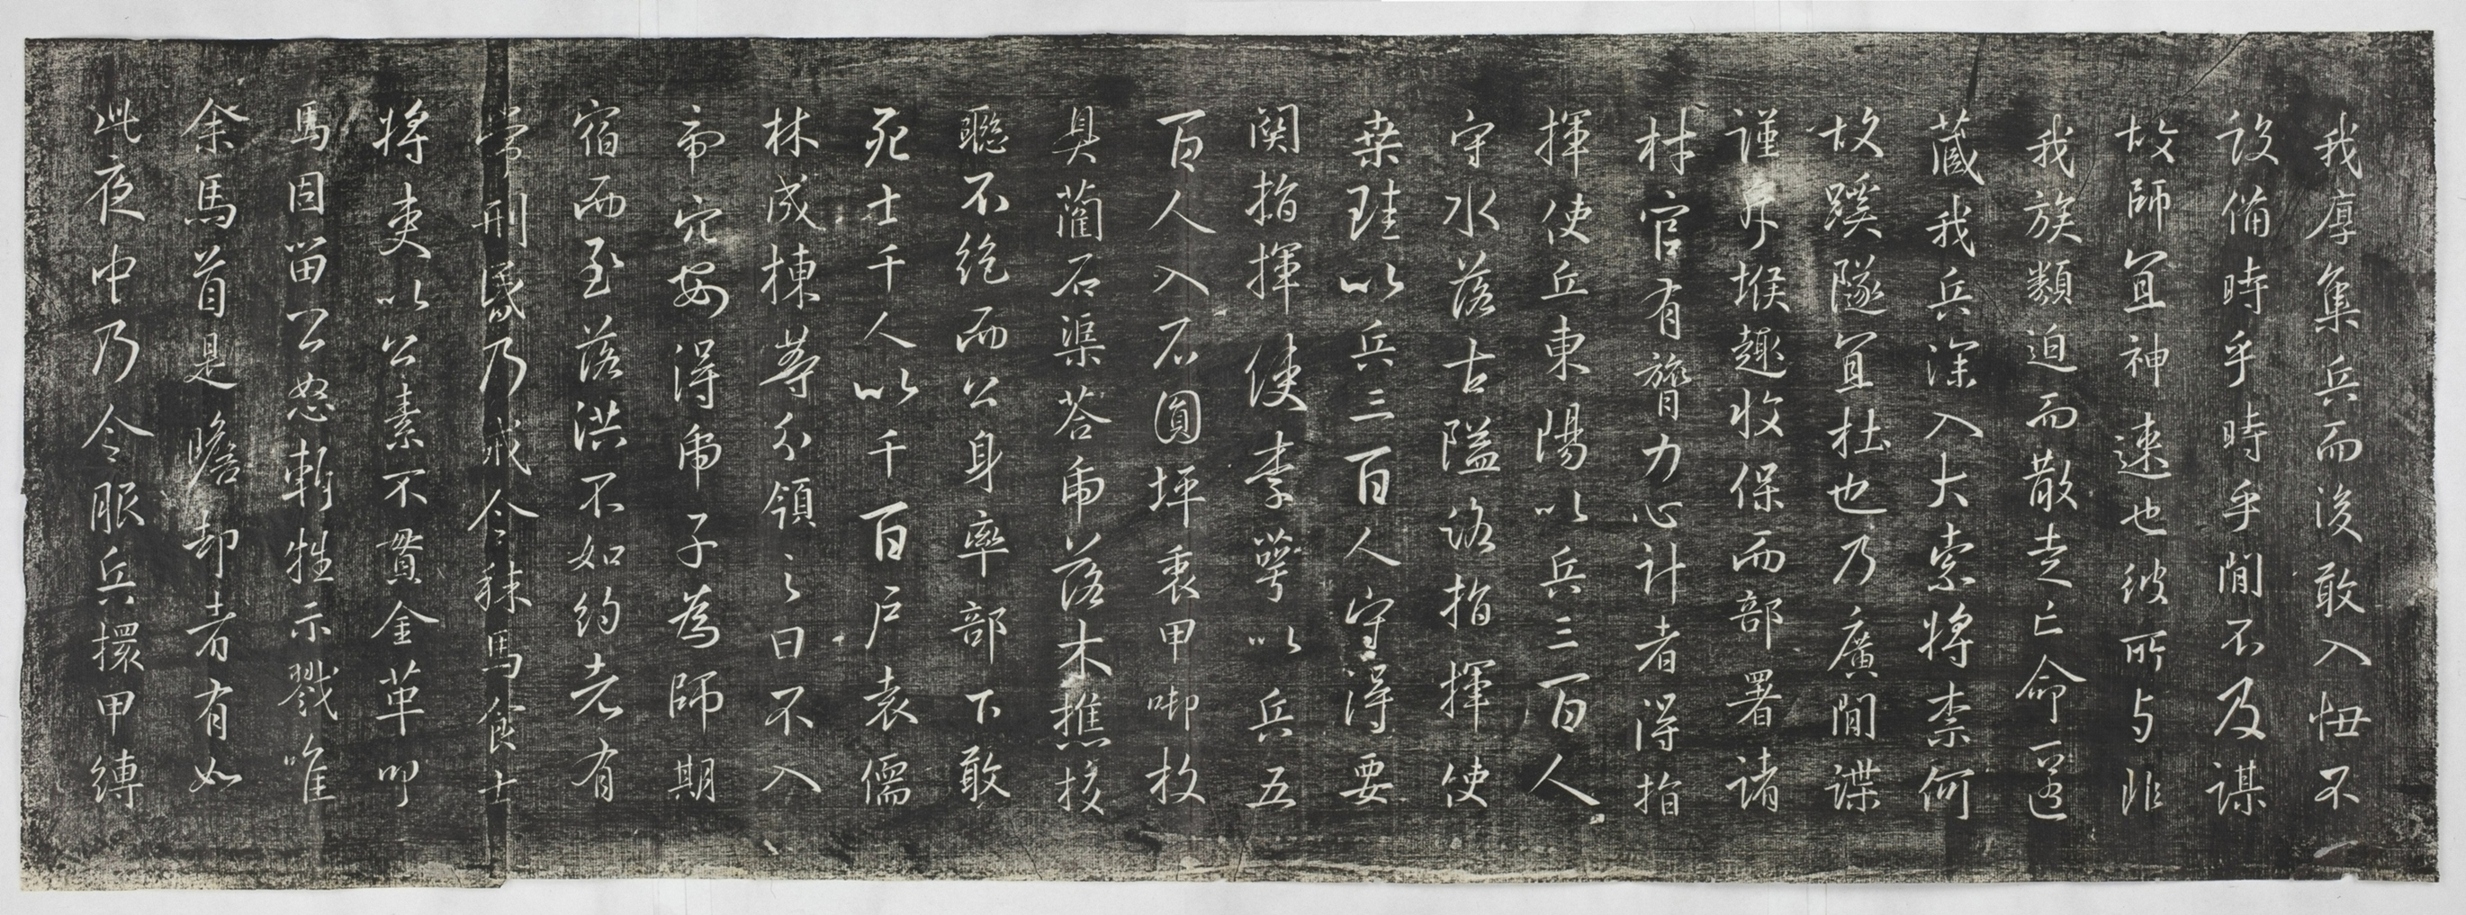 我厚集兵而後敢入忸不一
設備時乎時乎間不及謀
故師宜神速也彼所与非
我族類迫而散走亡命
藏我兵深入大索將柰何
故蹊隧宜杜也乃廣間諜
謹斥堠趣收保而部署諸
材官有膂力心計者得指
揮使丘東陽以兵三百人
守水落古隘洛指揮使
桒珪以兵三百人守得要
関指揮使李萼以兵五
百人入石圓坪裹甲啣枚
具藺石渠荅布落木樵挍
聯不絶而公身率部下敢
死士千人以千百户袁儒
林成棟等分領之曰不入
帍穴安得帍子為師期
宿而至落洪不如約者有
常刑眾乃戒令秣馬食士
將吏以公素不貫金革叩
馬固留公怒斬牲示戮唯
余馬首是瞻却者有如
此夜中乃令服兵擐甲縛